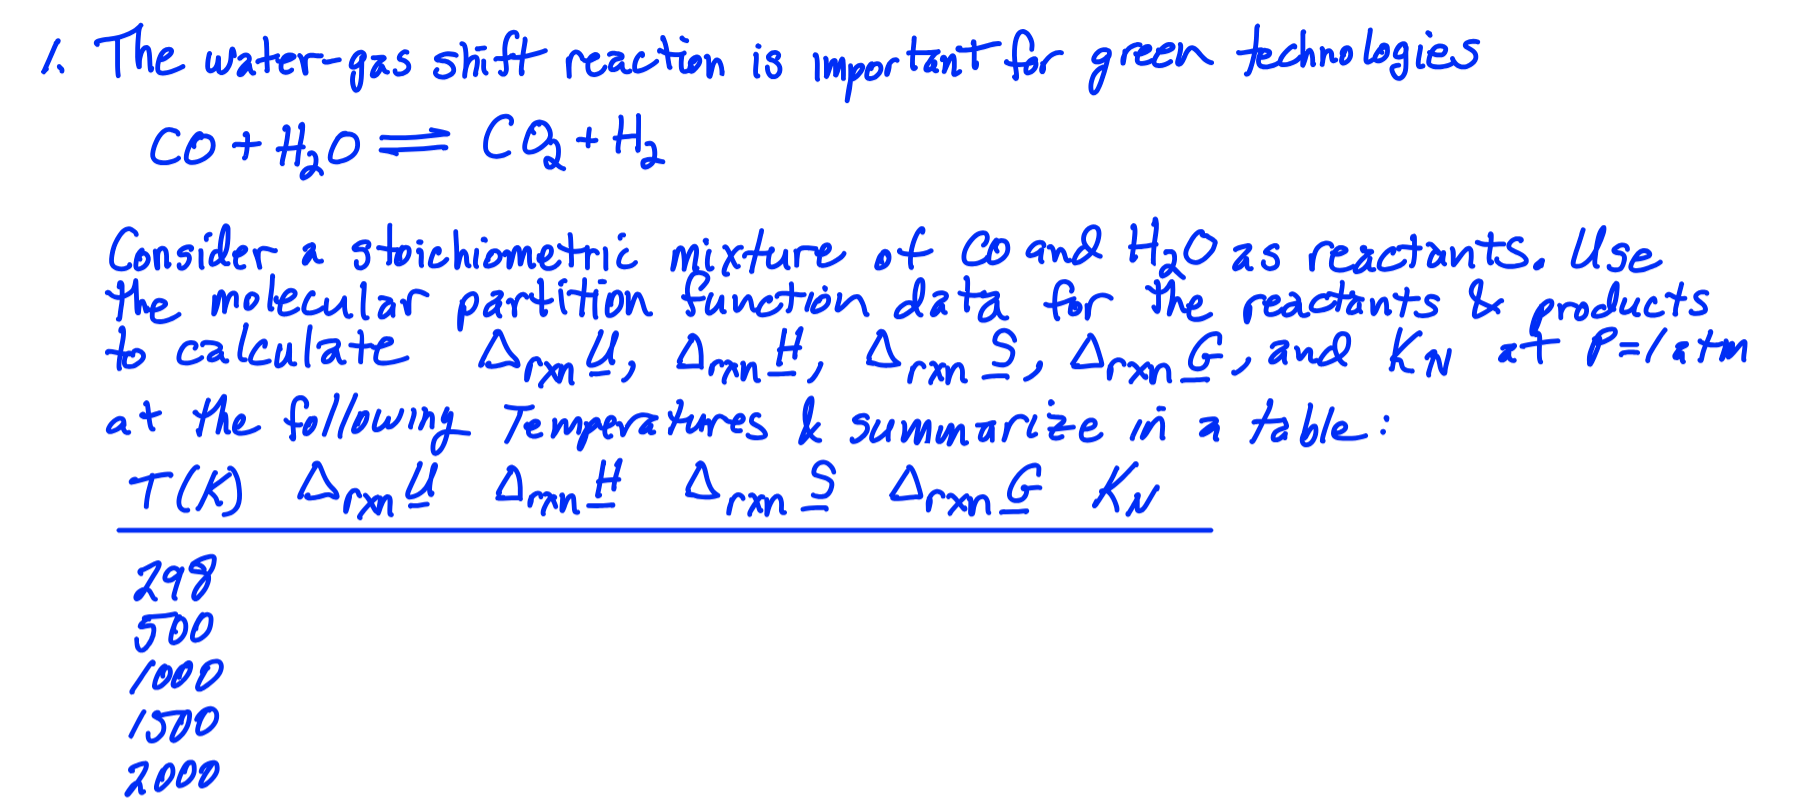 1. The water-gas shift reaction is important for green technologies
CO + H₂O ⇌ CO₂ + H₂
Consider a stoichiometric mixture of CO and H₂O as reactants. Use
the molecular partition function data for the reactants & products
to calculate Δrxn U, Δrxn H, Δrxn S, Δrxn G, and K_N at P=1atm
at the following Temperatures & summarize in a table:
T(K) Δrxn U Δrxn H Δrxn S Δrxn G K_N
298
500
1000
1500
2000